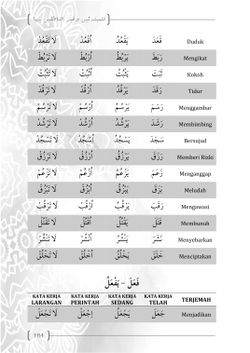 لَا تَقْعُدْ اُقْعُدْ يَقْعُدُ قَعَدَ Duduk
لَا تَرْبُطْ اُرْبُطْ يَرْبُطُ رَبَطَ Mengikat
لَا تَثْبُتْ اُثْبُتْ يَثْبُتُ ثَبَتَ Kokoh
لَا تَرْقُدْ اُرْقُدْ يَرْقُدُ رَقَدَ Tidur
لَا تَرْسُمْ اُرْسُمْ يَرْسُمُ رَسَمَ Menggambar
Membimbing
لَا تَسْجُدْ اُسْجُدْ يَسْجُدُ سَجَدَ Bersujud
لَا تَرْزُقْ اُرْزُقْ يَرْزُقُ رَزَقَ Memberi Rizki
لَا تَزْعُمْ اُزْعُمْ يَزْعُمُ زَعَمَ Menganggap
لَا تَبْزُقْ اُبْزُقْ يَبْزُقُ بَزَقَ Meludah
لَا تَرْقُبْ اُرْقُبْ يَرْقُبُ رَقَبَ Mengawasi
لَا تَقْتُلْ اُقْتُلْ يَقْتُلُ قَتَلَ Membunuh
لَا تَنْشُرْ اُنْشُرْ يَنْشُرُ نَشَرَ Menyebarkan
لَا تَخْلُقْ اُخْلُقْ يَخْلُقُ خَلَقَ Menciptakan
فَعَلَ – يَفْعَلُ
KATA KERJA LARANGAN KATA KERJA PERINTAH KATA KERJA SEDANG KATA KERJA TELAH TERJEMAH
لَا تَجْعَلْ اِجْعَلْ يَجْعَلُ جَعَلَ Menjadikan